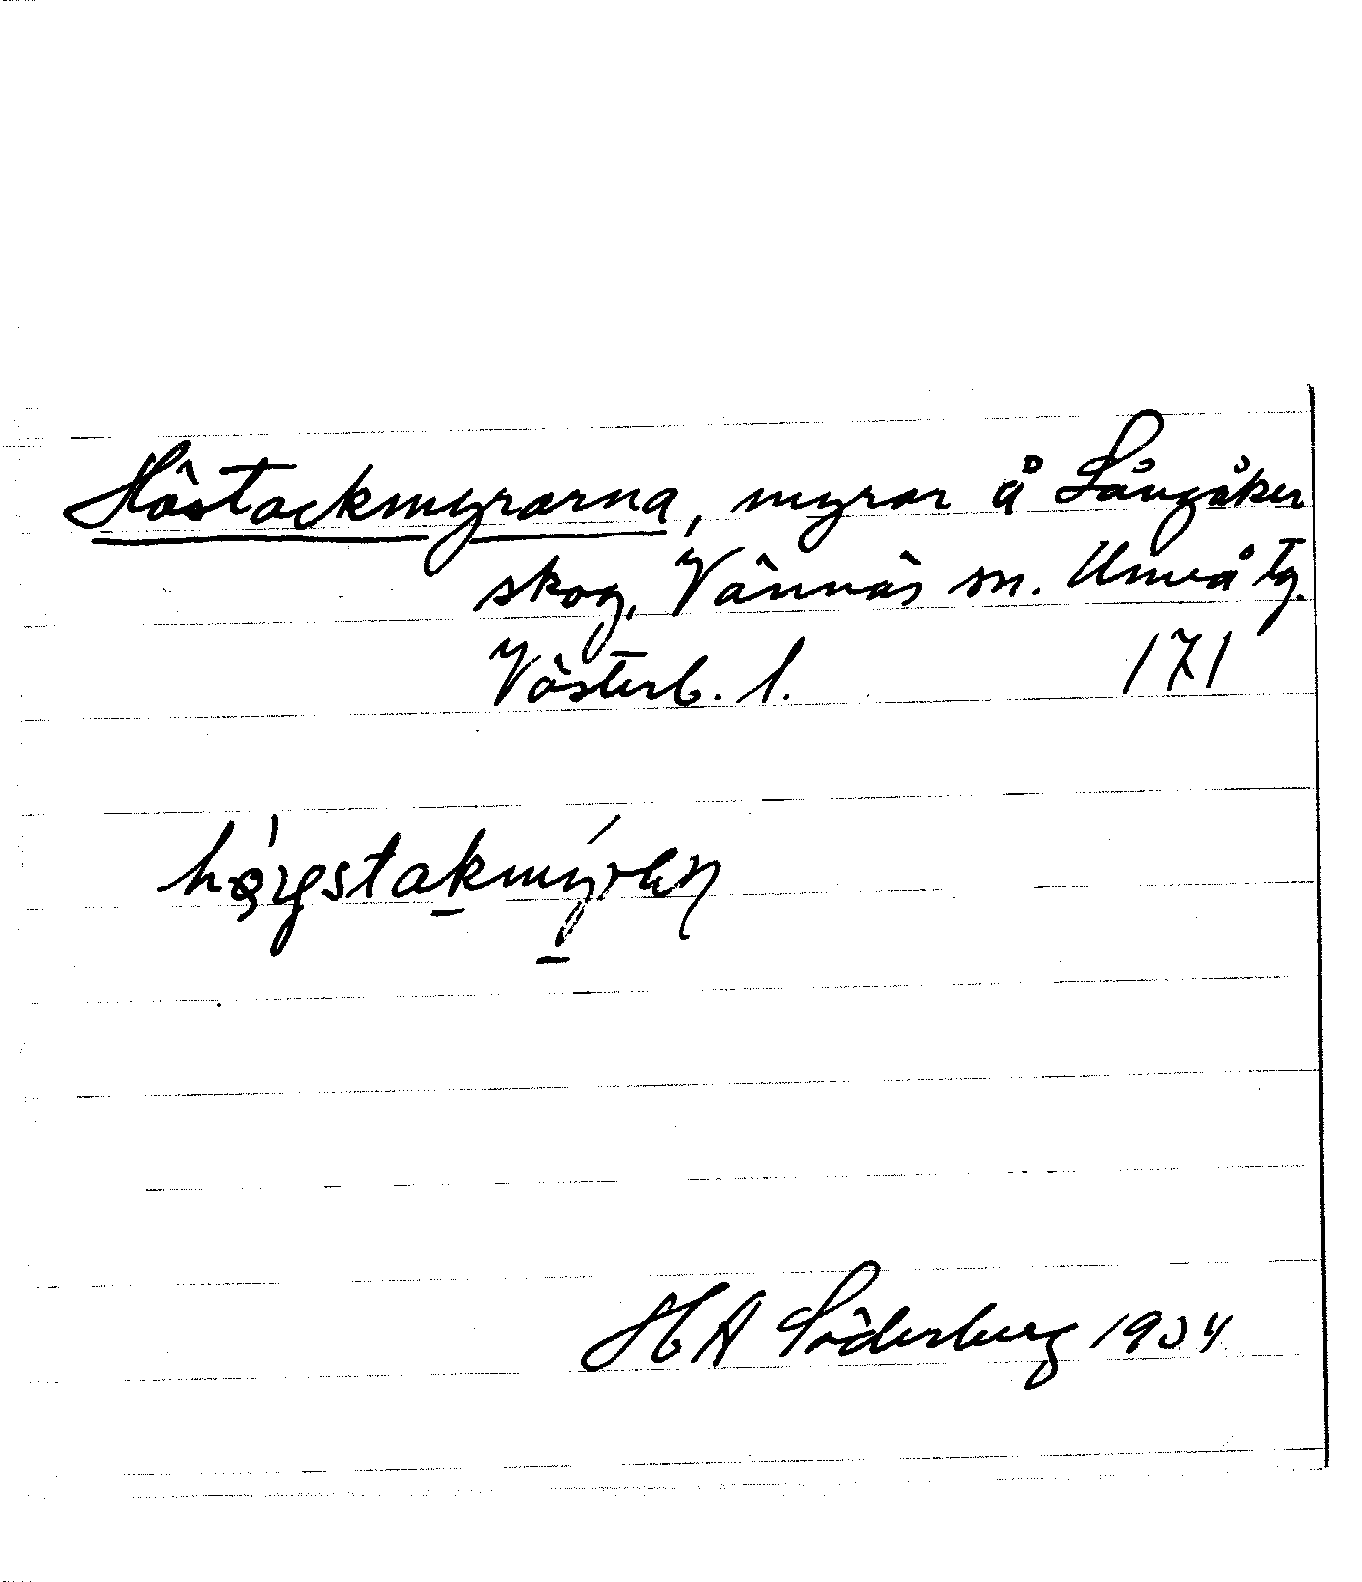 Höstackmyrarna, myrar å Långåker
skog, Vännäs sn. Umeå tg.
Västerb. l. 171
H A Söderberg 1934